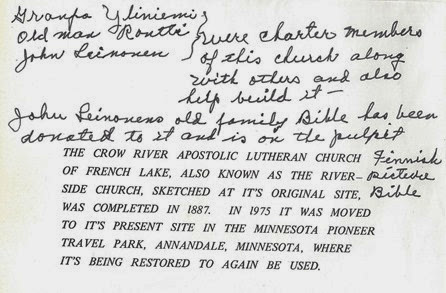 Granpa Yliniemi
Old man Rontti
John Leinonen
were charter members
of this church along
with others and also
help build it –
John Leinonens old family Bible has been
donated to it and is on the pulpet
Finnish
Picture
Bible
THE CROW RIVER APOSTOLIC LUTHERAN CHURCH
OF FRENCH LAKE, ALSO KNOWN AS THE RIVER-
SIDE CHURCH, SKETCHED AT IT'S ORIGINAL SITE,
WAS COMPLETED IN 1887. IN 1975 IT WAS MOVED
TO IT'S PRESENT SITE IN THE MINNESOTA PIONEER
TRAVEL PARK, ANNANDALE, MINNESOTA, WHERE
IT'S BEING RESTORED TO AGAIN BE USED.